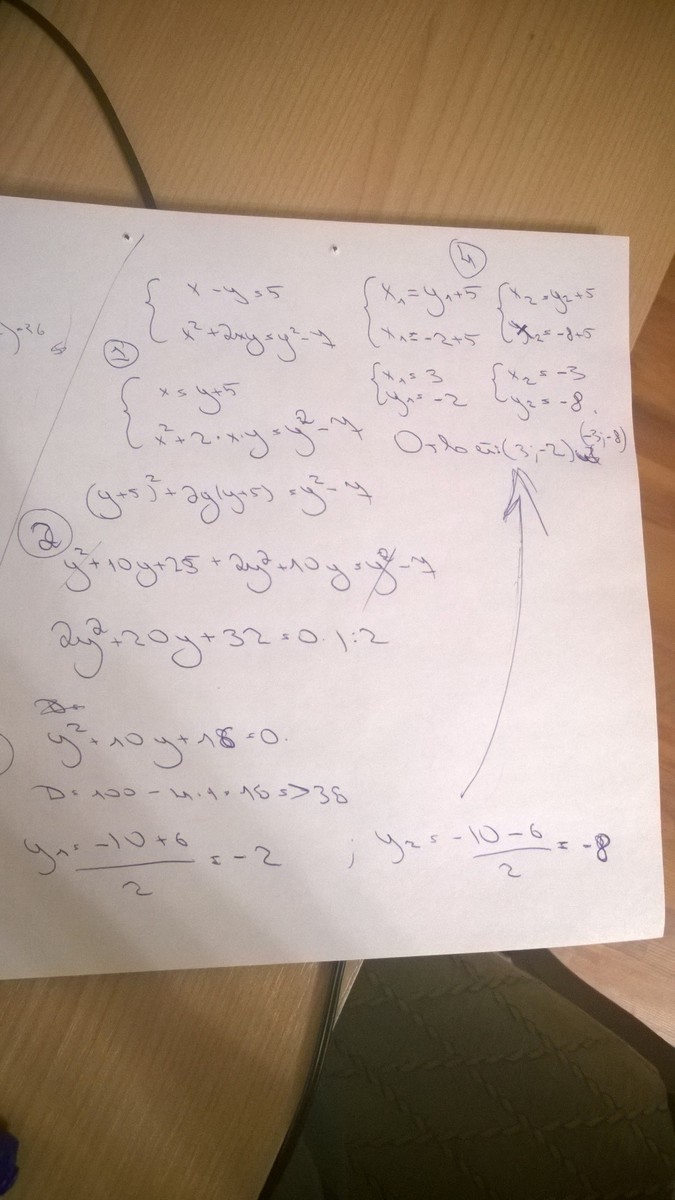 x - y = 5
x² + 2xy = y² - 7
1
x = y + 5
x² + 2 · x · y = y² - 7
(y+5)² + 2y(y+5) = y² - 7
2
y² + 10y + 25 + 2y² + 10y = y² - 7
2y² + 20y + 32 = 0. | : 2
y² + 10y + 16 = 0.
D = 100 - 4 · 1 · 16 => 36
y₁ = (-10 + 6)/2 = -2 ; y₂ = (-10 - 6)/2 = -8
4
x₁ = y₁ + 5
x₁ = -2 + 5
x₂ = y₂ + 5
x₂ = -8 + 5
x₁ = 3
y₁ = -2
x₂ = -3
y₂ = -8.
Ответ: (3; -2) (-3; -8)